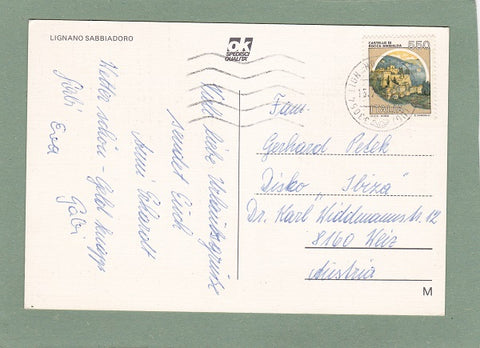 LIGNANO SABBIADORO
ok
SPEDISCI
QUALITÀ
CASTELLO DI
ROCCA SINIBALDA
550
Viele liebe Urlaubsgrüße
sendet Euch
Wetter schön - Geld knapp
Gabi
Eva
Fam.
Gerhard Petek
Disko "Ibiza"
Dr. Karl Widdmannstr. 12
8160 Weiz
Austria
M